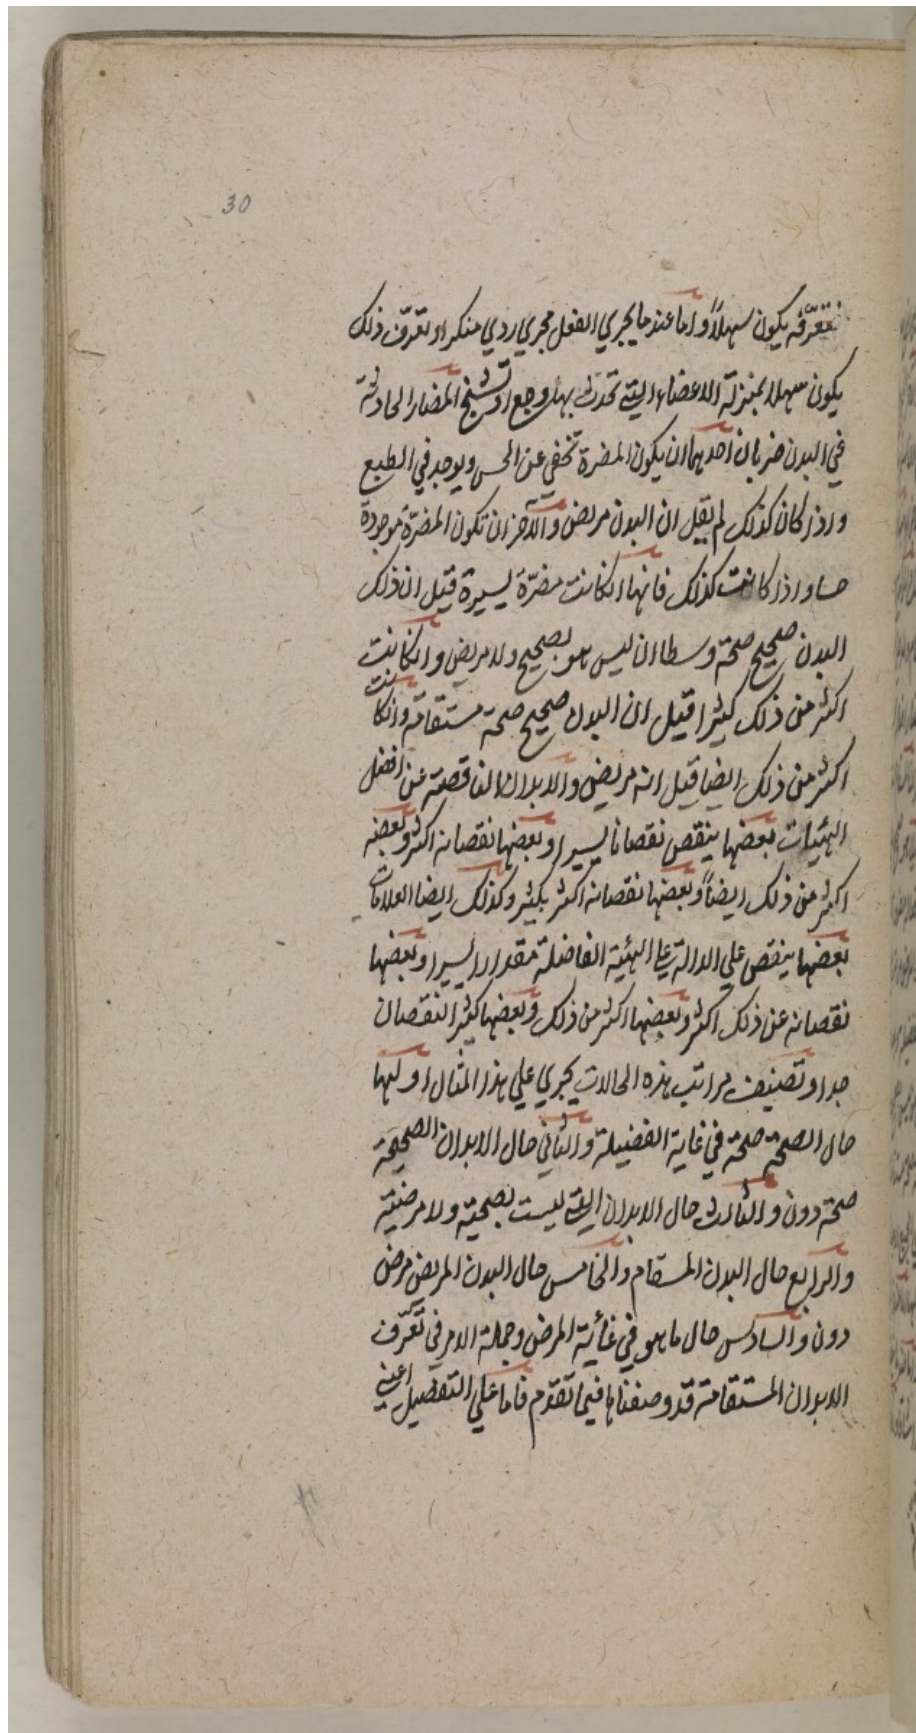 30
فتعرّفه يكون سهلاً واما عند ما يجري الفعل مجري ردي منكر او تعرّف ذلك
يكون سهلا بمنزلة الاعضاء التي تحدث بها وجع او تشنج المضار الحادثة
في البدن ضربان احدهما ان يكون المضرة تخفي عن الحس ويوجد في الطبع
واذا كان كذلك لم يقل ان البدن مريض والآخر ان تكون المضرّة موجودة
حسا واذا كانت كذلك فانها انكانت مضرّة يسيرة قيل ان ذلك
البدن صحيح صحة وسطا ان ليس هو بصحيح ولا مريض وانكانت
اكثر من ذلك كثيرا قيل ان البدن صحيح صحة مستقامة وانكانت
اكثر من ذلك ايضا قيل انه مريض والابدان الناقصة عن افضل
الهيئات بعضها ينقص نقصانا يسيرا وبعضها نقصانه اكثر وبعضه
اكثر من ذلك ايضاً وبعضها نقصانه اكثر بكثير وكذلك ايضا العلامات
بعضها ينقص علي الدالة علي الهيئة الفاضلة مقدارا يسيرا وبعضها
نقصانه عن ذلك اكثر وبعضها اكثر من ذلك وبعضها كثير النقصان
جدا وتصنيف مراتب هذه الحالات يجري علي هذا المثال اولها
حال الصحة صحة في غاية الفضيلة والثاني حال الابدان الصحيحة
صحة دون والثالث حال الابدان التي ليست بصحية ولا مرضية
والرابع حال البدن المسقام والخامس حال البدن المريض مرض
دون والسادس حال ما هو في غاية المرض وجملة الامر في تعرّف
الابدان المستقامة قد وصفناها فيما تقدّم فاما علي التفصيل اعني